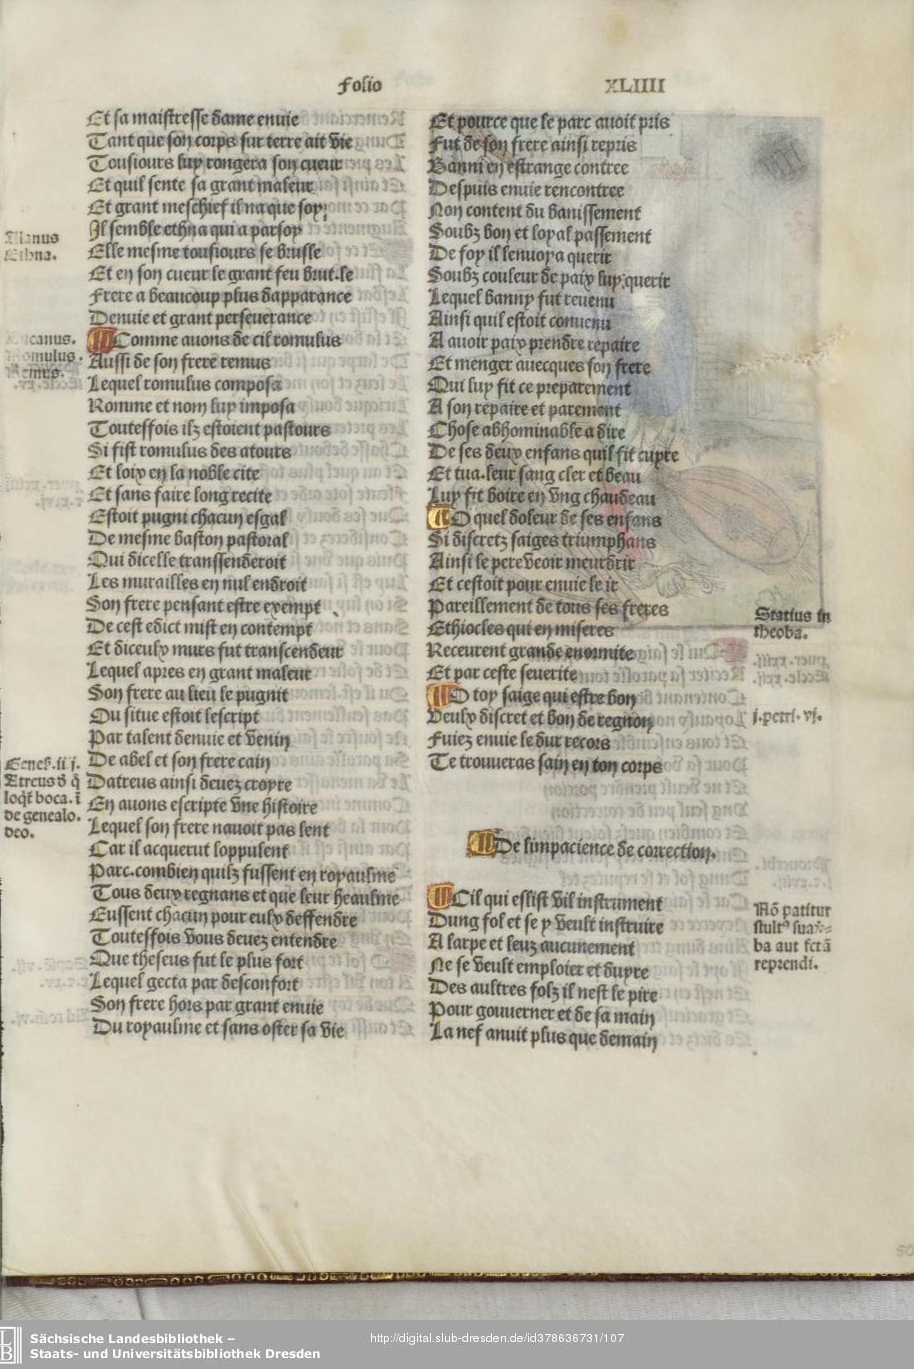 Folio XLIIII
Et sa maistresse dame enuie
Tant que son corps sur terre ait vie
Tousiours luy rongera son cueur
Et quil sente sa grant maleur
Et grant meschief il na que soy
Il semble ethna qui a parsoy
Elle mesme tousiours se brusle
Et en son cueur le grant feu brusle
Frere a beaucoup plus dapparance
Denuie et grant perseuerance
Comme auons de cil romulus
Aussi de son frere remus
Lequel romulus composa
Romme et nom luy imposa
Toutesfois ilz estoient pastours
Si fist romulus des atours
Et loix en la noble cite
Et sans faire long recite
Estoit pugni chacun esgal
De mesme baston pastoral
Qui dicelle transsenderoit
Les murailles en nul endroit
Son frere pensant estre exempt
De cest edict mist en contempt
Et diceulx murs fut transcendeur
Lequel apres en grant maleur
Son frere au lieu le pugnit
Ou situe estoit lescript
Par talent denuie et venin
De abel et son frere cain
Datreus ainsi deuez croyre
En auons escripte vne histoire
Lequel son frere nauoit pas lent
Car il acquerut loppulent
Parc.combien quilz fussent en royaulme
Tous deux regnans et que leur heaulme
Eussent chacun pour eulx deffendre
Toutesfois vous deuez entendre
Que theseus fut le plus fort
Lequel gecta par desconfort
Son frere hors par grant enuie
Du royaulme et sans oster sa vie
Et pource que le parc auoit pris
Fut de son frere ainsi repris
Banni en estrange contree
Despuis enuie rencontree
Non content du banissement
Soubz bon et loyal passement
De foy il lenuoya querir
Soubz couleur de paix luy querir
Lequel banny fut reuenu
Ainsi quil estoit conuenu
A auoir paix prendre repaire
Et menger auecques son frere
Qui luy fit ce preparement
A son repaire et parement
Chose abhominable a dire
De ses deux enfans quil fit cuyre
Et tua.leur sang cler et beau
Luy fit boire en vng chaudeau
O quel doleur de ses enfans
Si discretz saiges triumphans
Ainsi le pere veoir meurdrir
Et cestoit pour enuie le ir
Pareillement de tous ses freres
Ethiocles qui en miseres
Receurent grande enormite
Et par ceste seuerite
O toy saige qui estre bon
Veulx discret et bon de regnon
Fuiez enuie le dur recors
Te trouueras sain en ton corps
De limpacience de correction.
Cil qui eslist vil instrument
Dung fol et se y veult instruire
A larpe et leuz aucunement
Ne se veult emploier et duyre
Des aultres folz il nest le pire
Pour gouuerner et de sa main
La nef anuit plus que demain
Ethna.
Genes. iiij.
Etreus d q̃
loqt̃ boca. ĩ
de genealo.
deo.
Statius in
theoba.
j.petri. vj.
Nō patitur
reprendi.
Sächsische Landesbibliothek –
Staats- und Universitätsbibliothek Dresden
http://digital.slub-dresden.de/id378636731/107